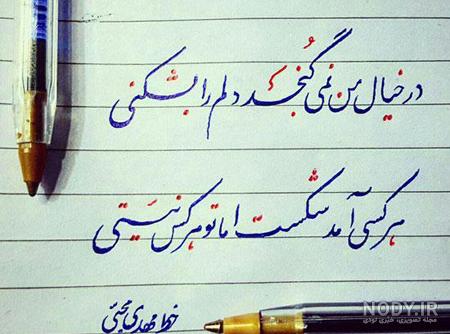 در خیال من نمی گنجد دلم را بشکنی
هر کسی آمد شکست اما تو هر کس نیستی
خط مهدی مجتبی
NODY.IR
مجله تصویری، خبری نودی